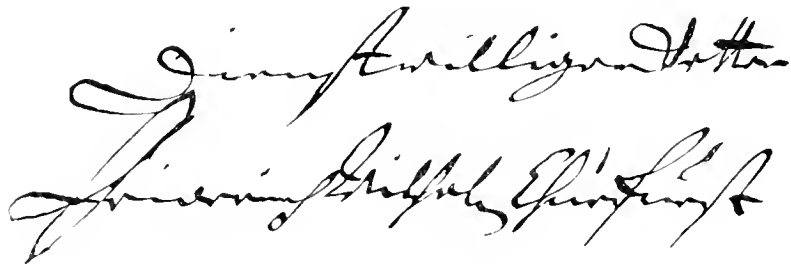 Dienstwilliger Vetter
Friderich Wilhelm Churfürst